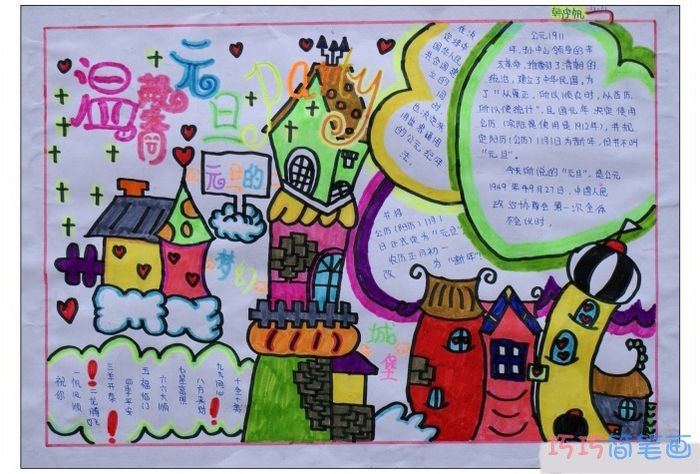 温馨
元旦Party
元旦的
梦幻
城堡
公元1911
年,孙中山领导的辛
亥革命,推翻了清朝的
统治,建立了中华民国,为
了"从夏正,所以顺农时,从西历,
所以便统计",民国元年决定使用
公历(实际是使用是1912年),并规
定阳历(公历)1月1日为新年,但并不叫
"元旦"。
今天所说的"元旦",是公元
1949年9月27日,中国人民
政治协商会第一次全体
会议时,
在决
定建立
中华人民
共和国
的同时
也决定采
用世界通用
的公元纪年
法,
并将
公历(阳历)1月1
日正式定为"元旦"
农历正月初一
改为"新年"。
祝你
一帆风顺
二龙腾飞
三羊开泰
四季平安
五福临门
六六大顺
七星高照
八方来财
九九同心
十全十美
巧巧简笔画